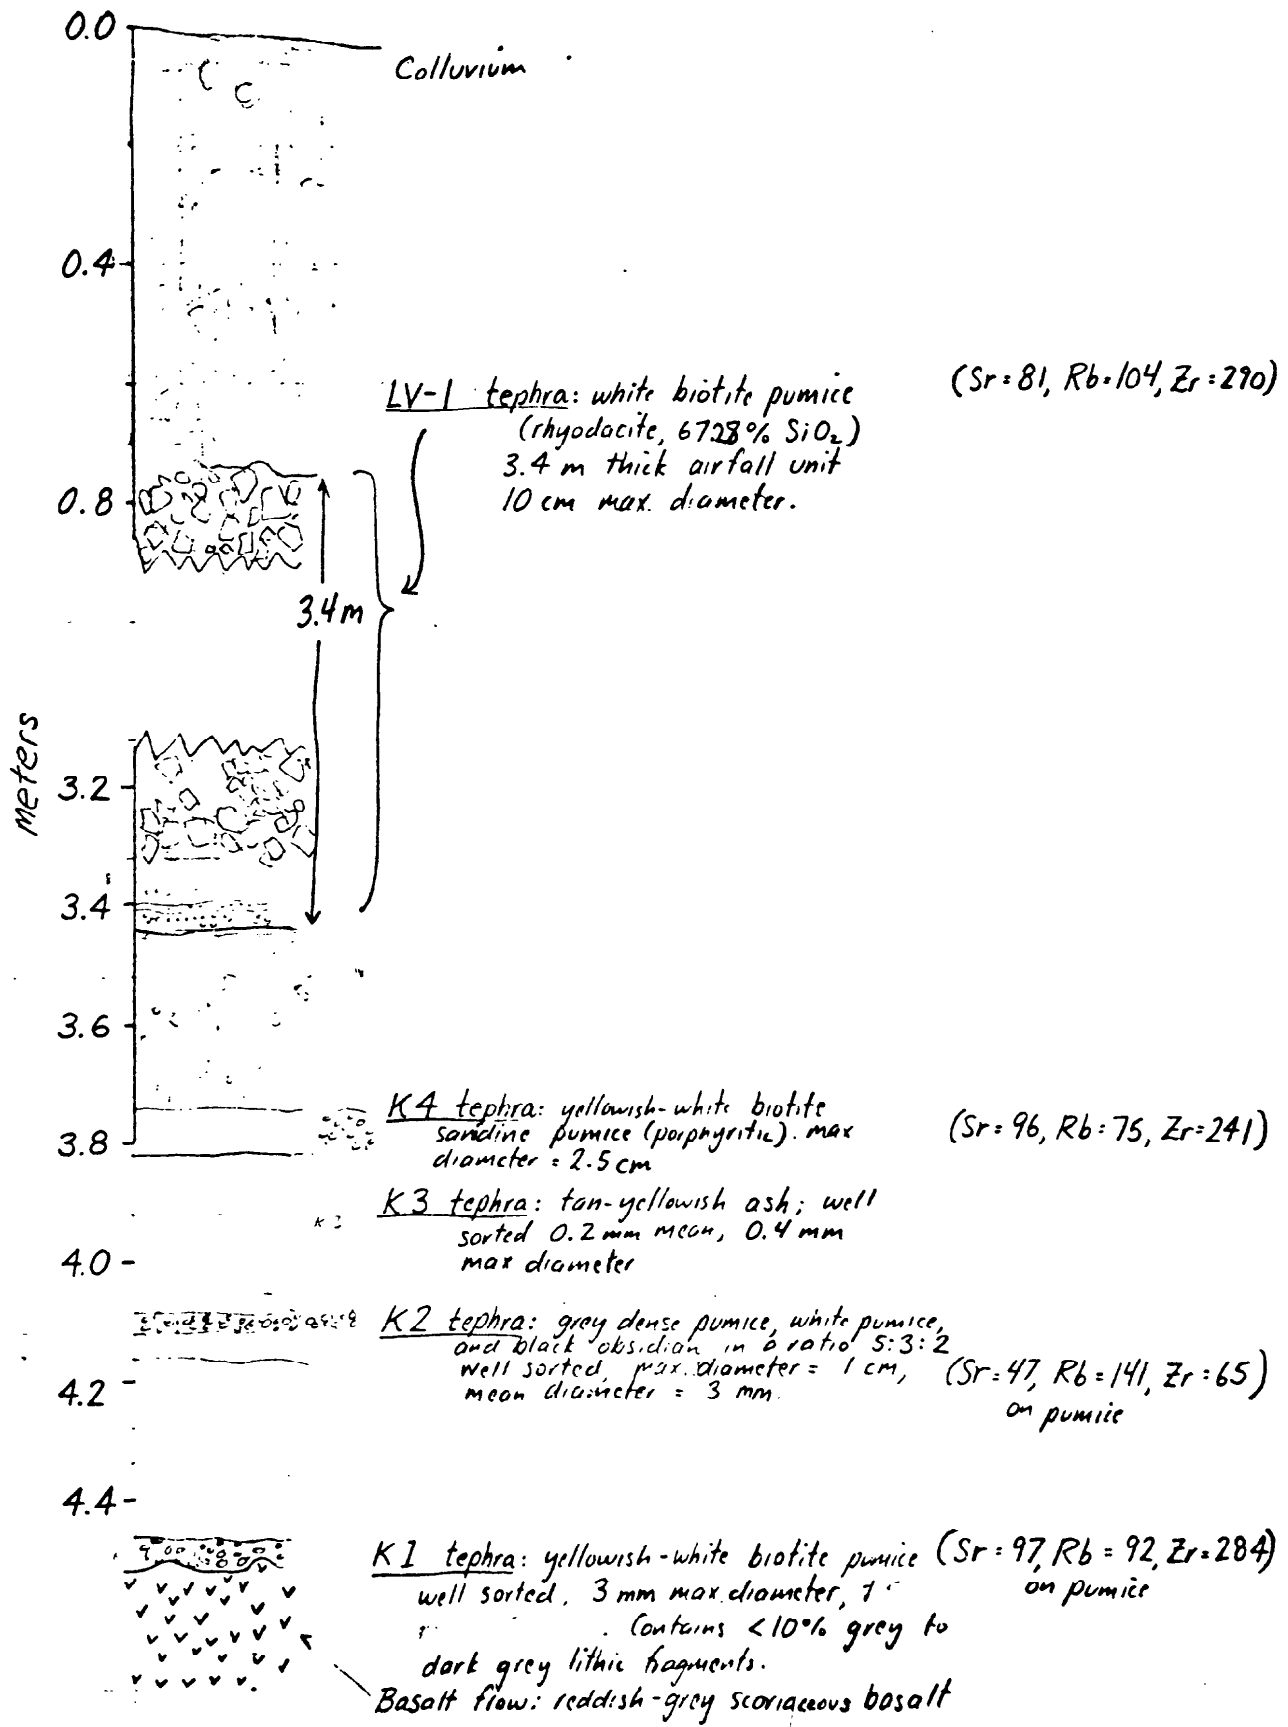 0.0
Colluvium
0.4
LV-1 tephra: white biotite pumice
(rhyodacite, 67.28% SiO₂)
3.4 m thick airfall unit
10 cm max. diameter.
(Sr=81, Rb=104, Zr=290)
0.8
3.4m
meters
3.2
3.4
3.6
K4 tephra: yellowish-white biotite
sanidine pumice (porphyritic). max
diameter = 2.5 cm
(Sr=96, Rb=75, Zr=241)
3.8
K3 tephra: tan-yellowish ash; well
sorted 0.2 mm mean, 0.4 mm
max diameter
K3
4.0
K2 tephra: grey dense pumice, white pumice,
and black obsidian in a ratio 5:3:2
well sorted, max. diameter = 1 cm,
mean diameter = 3 mm.
(Sr=47, Rb=141, Zr=65)
on pumice
4.2
4.4
K1 tephra: yellowish-white biotite pumice
well sorted, 3 mm max. diameter,
Contains <10% grey to
dark grey lithic fragments.
(Sr=97, Rb=92, Zr=284)
on pumice
Basalt flow: reddish-grey scoriaceous basalt